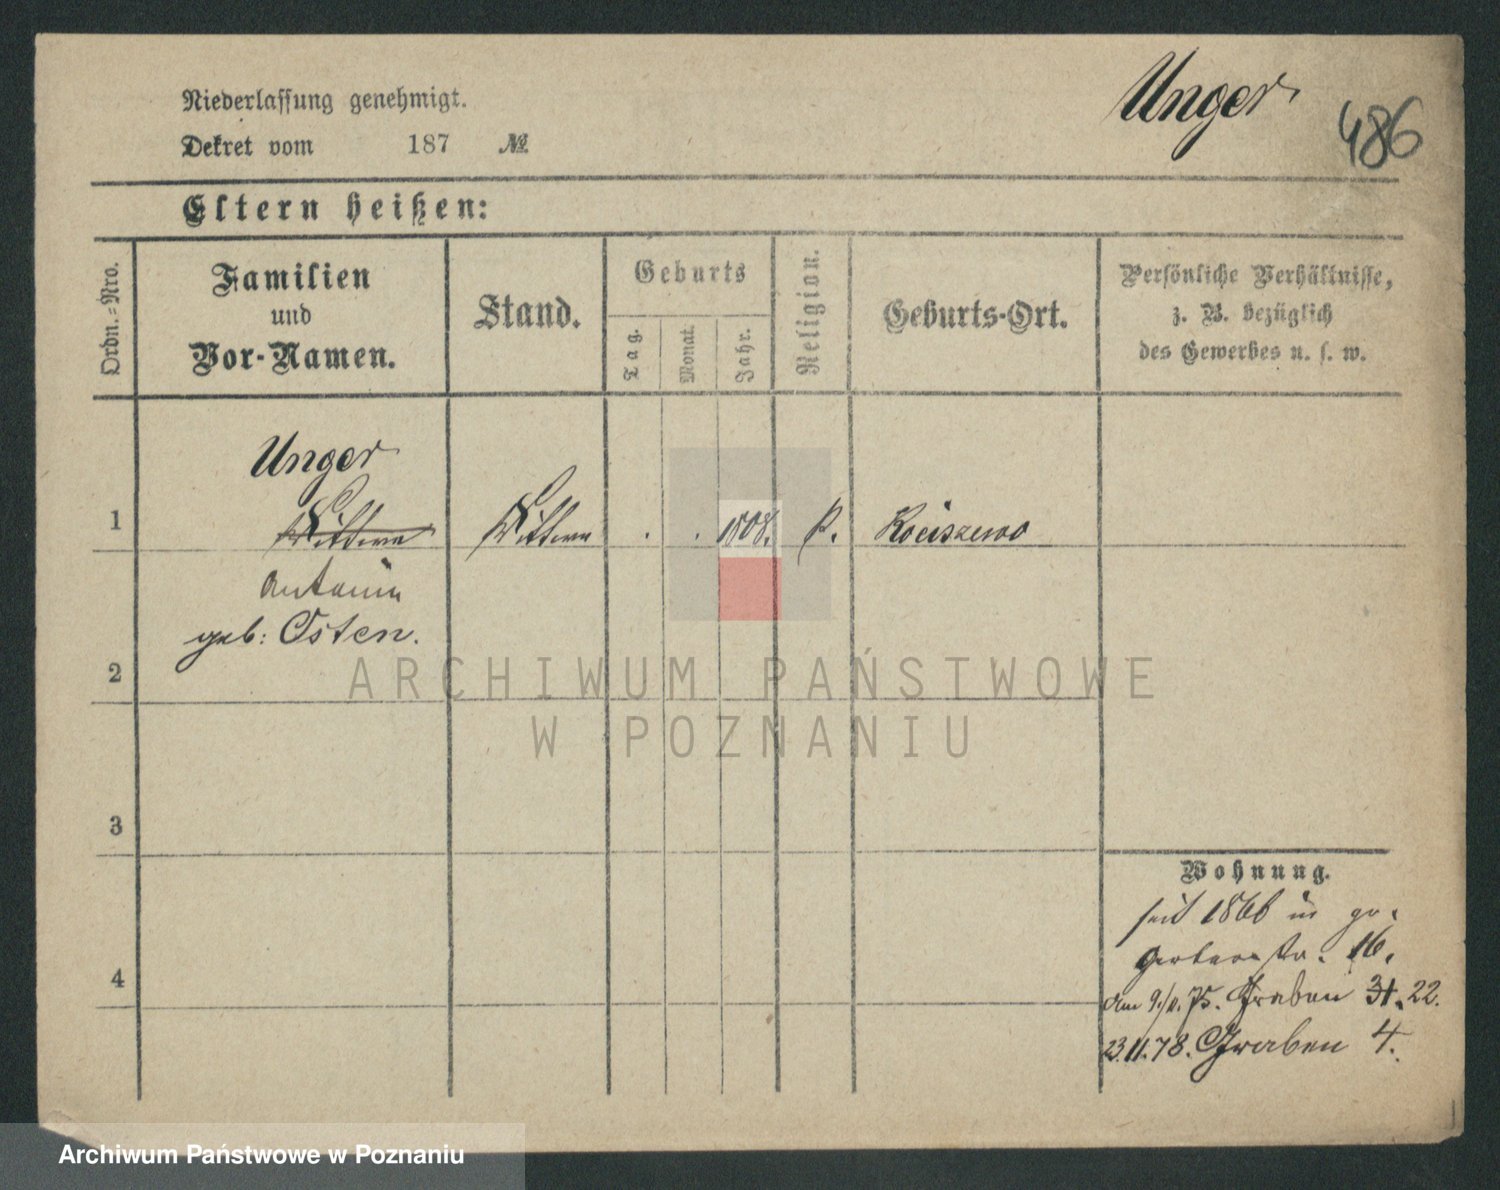 Unger
486
Niederlassung genehmigt.
Dekret vom 187 №
Eltern heißen:
Ordn.=Nro.
Familien
und
Vor-Namen.
Stand.
Geburts
Tag.
Monat.
Jahr.
Religion.
Geburts-Ort.
Persönliche Verhältnisse,
z. B. bezüglich
des Gewerbes u. s. w.
Unger
1 Wittwe Wittwe . . 1808. k. Kociszewo
Antonie
geb: Osten.
2
3
4
Wohnung.
seit 1866 in
Gerberstr. 16.
am 75. Graben 31. 22.
23.11.78. Graben 4.
ARCHIWUM PAŃSTWOWE
W POZNANIU
Archiwum Państwowe w Poznaniu